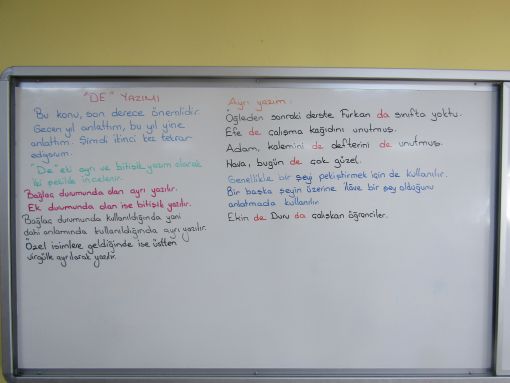 "DE" YAZIMI
Bu konu, son derece önemlidir.
Geçen yıl anlattım, bu yıl yine
anlattım. Şimdi ikinci kez tekrar
ediyorum.
"De" eki ayrı ve bitişik yazım olarak
iki şekilde incelenir.
Bağlaç durumunda olan ayrı yazılır.
Ek durumunda olan ise bitişik yazılır.
Bağlaç durumunda kullanıldığında yani
dahi anlamında kullanıldığında ayrı yazılır.
Özel isimlere geldiğinde ise üstten
virgülle ayrılarak yazılır.
Ayrı yazım:
Öğleden sonraki derste Furkan da sınıfta yoktu.
Efe de çalışma kağıdını unutmuş.
Adam, kalemini de defterini de unutmuş.
Hava, bugün de çok güzel.
Genellikle bir şeyi pekiştirmek için de kullanılır.
Bir başka şeyin üzerine ilave bir şey olduğunu
anlatmada kullanılır.
Ekin de Duru da çalışkan öğrenciler.